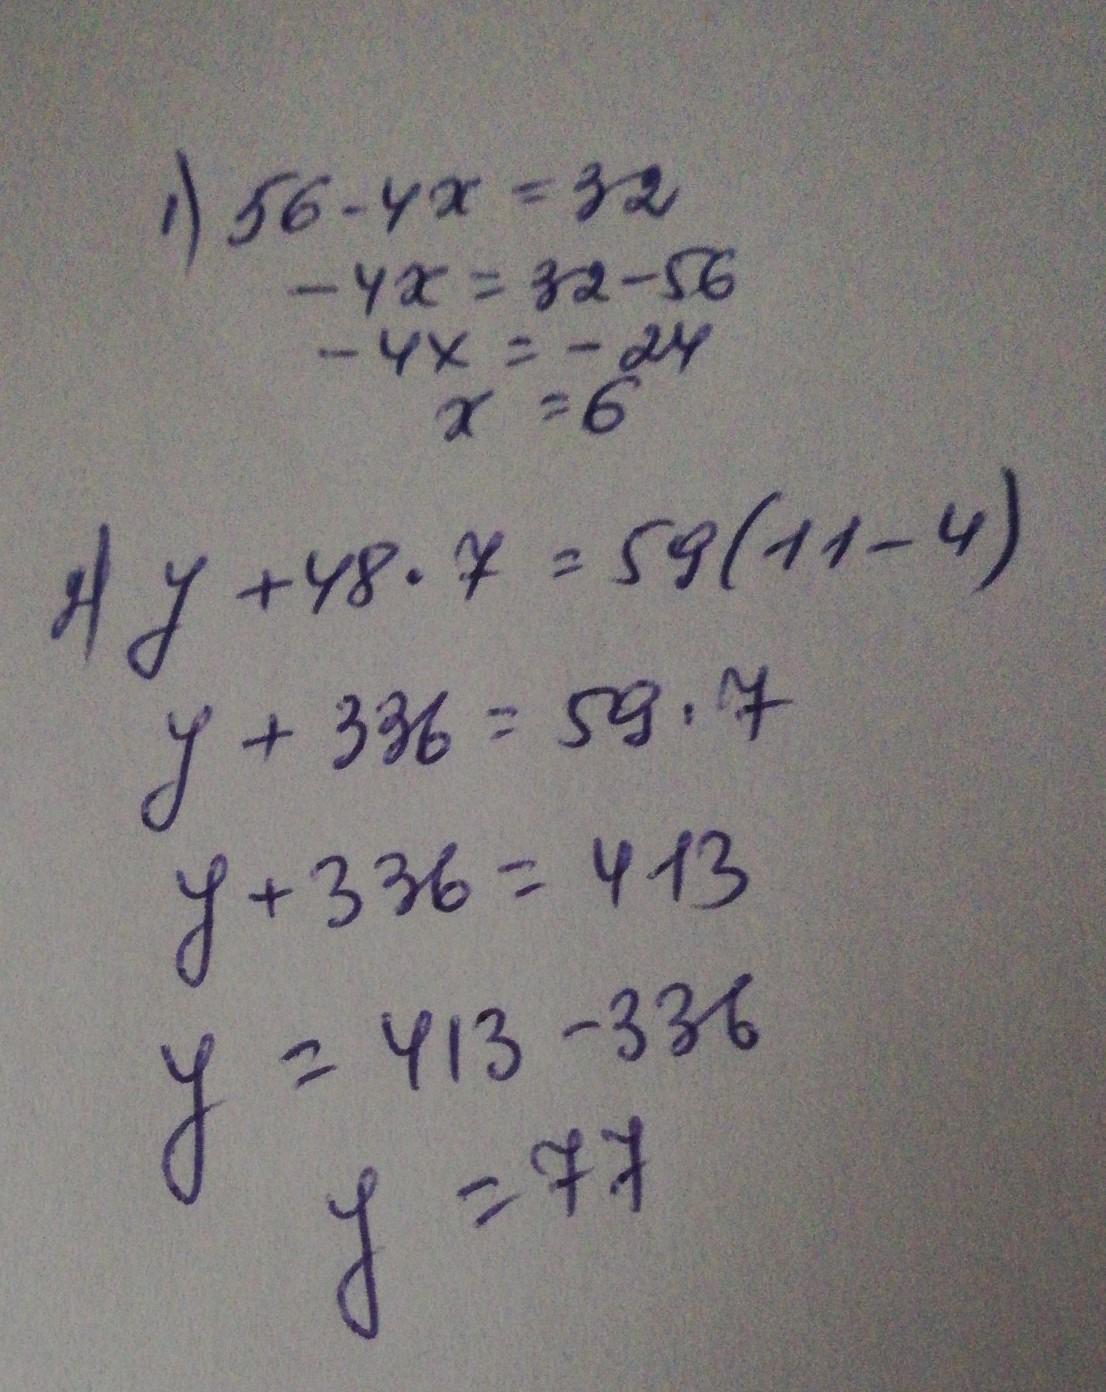 1) 56-4x = 32
-4x = 32-56
-4x = -24
x = 6
2) y + 48 · 7 = 59(11-4)
y + 336 = 59 · 7
y + 336 = 413
y = 413 - 336
y = 77